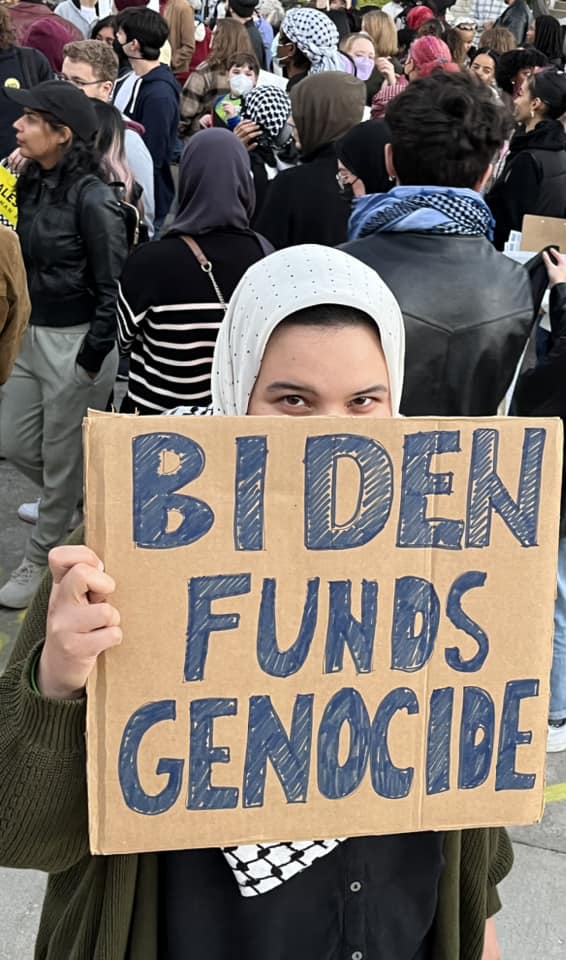 BIDEN
FUNDS
GENOCIDE